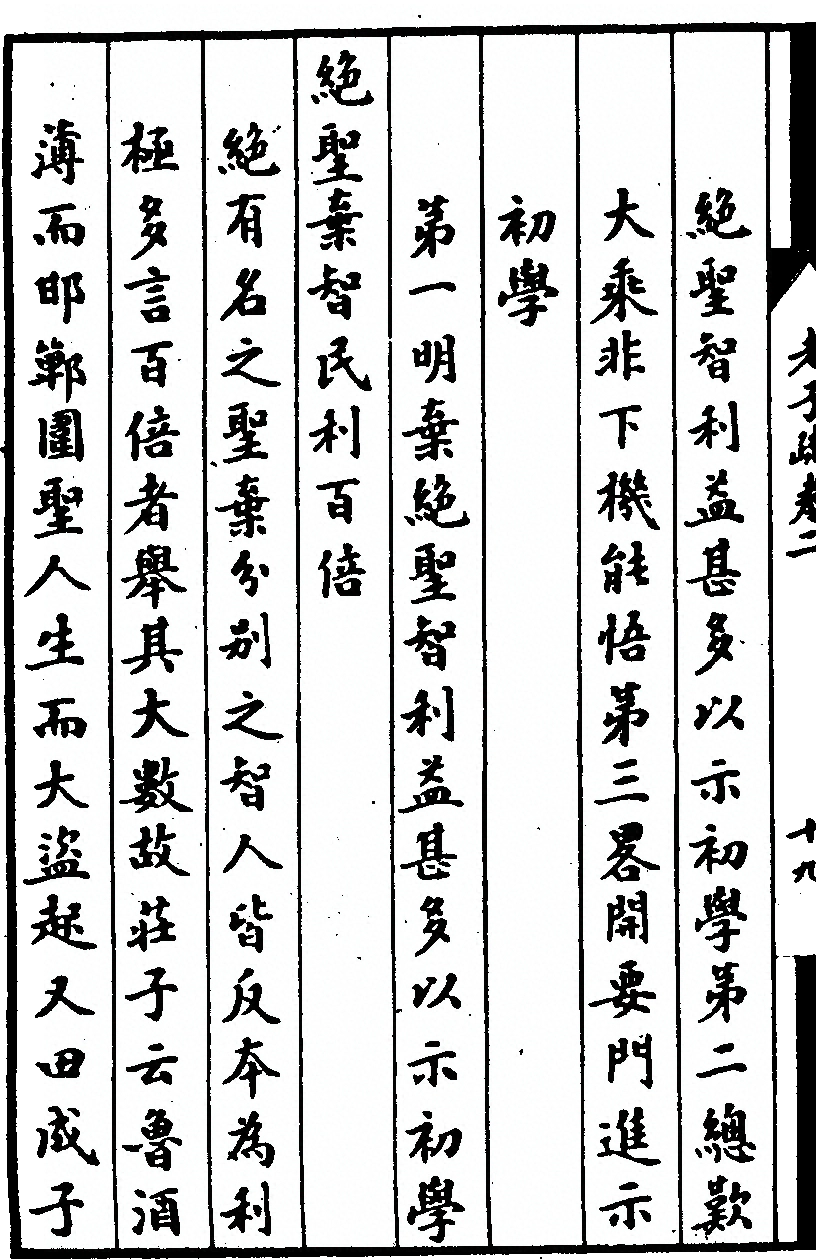 老子疏卷二
十九
絕聖智利益甚多以示初學第二總歎
大乘非下機能悟第三畧開要門進示
初學
第一明棄絕聖智利益甚多以示初學
絕聖棄智民利百倍
絕有名之聖棄分別之智人皆反本為利
極多言百倍者舉其大數故莊子云魯酒
薄而邯鄲圍聖人生而大盜起又田成子